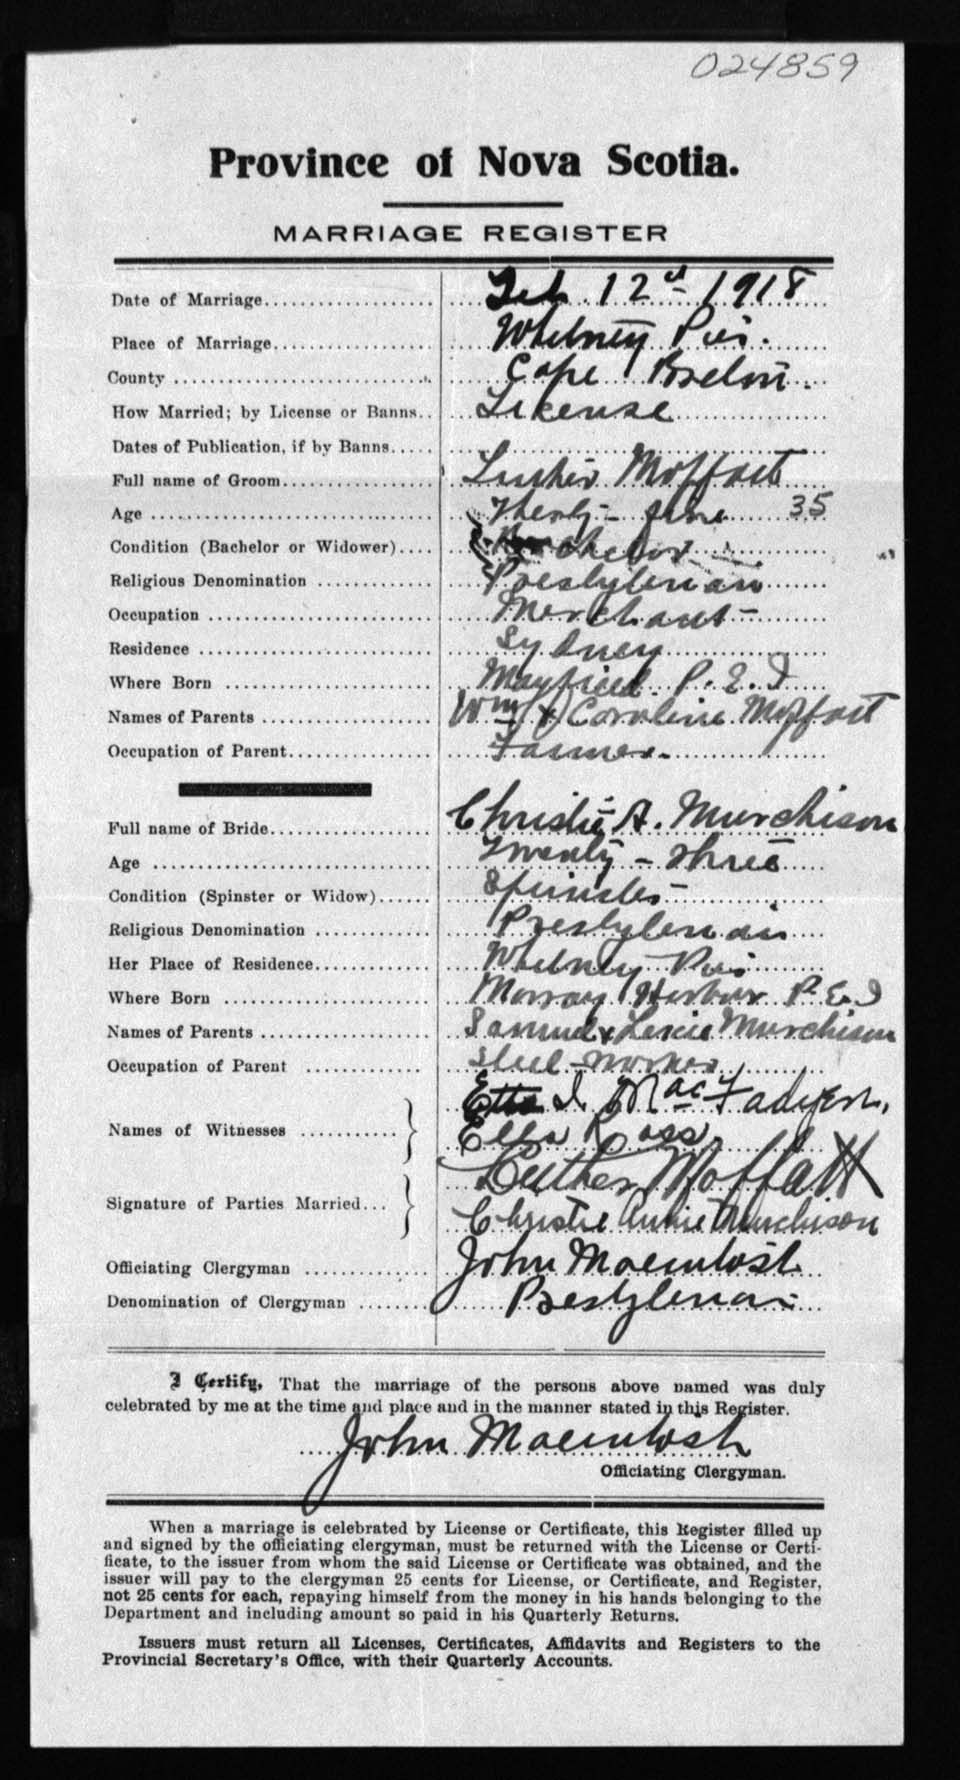 024859
Province of Nova Scotia.
MARRIAGE REGISTER
Date of Marriage Feb. 12th 1918
Place of Marriage Whitney Pier.
County Cape Breton.
How Married; by License or Banns License
Dates of Publication, if by Banns
Full name of Groom Luther Moffatt
Age Thirty-five 35
Condition (Bachelor or Widower) Bachelor
Religious Denomination Presbyterian
Occupation Merchant
Residence Sydney
Where Born Mayfield. P. E. I
Names of Parents Wm & Caroline Moffatt
Occupation of Parent Farmer.
Full name of Bride Christie A. Murchison
Age Twenty-three
Condition (Spinster or Widow) Spinster
Religious Denomination Presbyterian
Her Place of Residence Whitney Pier
Where Born Murray Harbor P.E.I
Names of Parents Samuel & Lexie Murchison
Occupation of Parent Steel-worker
Names of Witnesses Etta I. MacFadyen,
Ella Ross
Signature of Parties Married Luther Moffatt
Christie Annie Murchison
Officiating Clergyman John Macintosh
Denomination of Clergyman Presbyterian
I Certify, That the marriage of the persons above named was duly
celebrated by me at the time and place and in the manner stated in this Register.
John Macintosh
Officiating Clergyman.
When a marriage is celebrated by License or Certificate, this Register filled up
and signed by the officiating clergyman, must be returned with the License or Certi-
ficate, to the issuer from whom the said License or Certificate was obtained, and the
issuer will pay to the clergyman 25 cents for License, or Certificate, and Register,
not 25 cents for each, repaying himself from the money in his hands belonging to the
Department and including amount so paid in his Quarterly Returns.
Issuers must return all Licenses, Certificates, Affidavits and Registers to the
Provincial Secretary's Office, with their Quarterly Accounts.